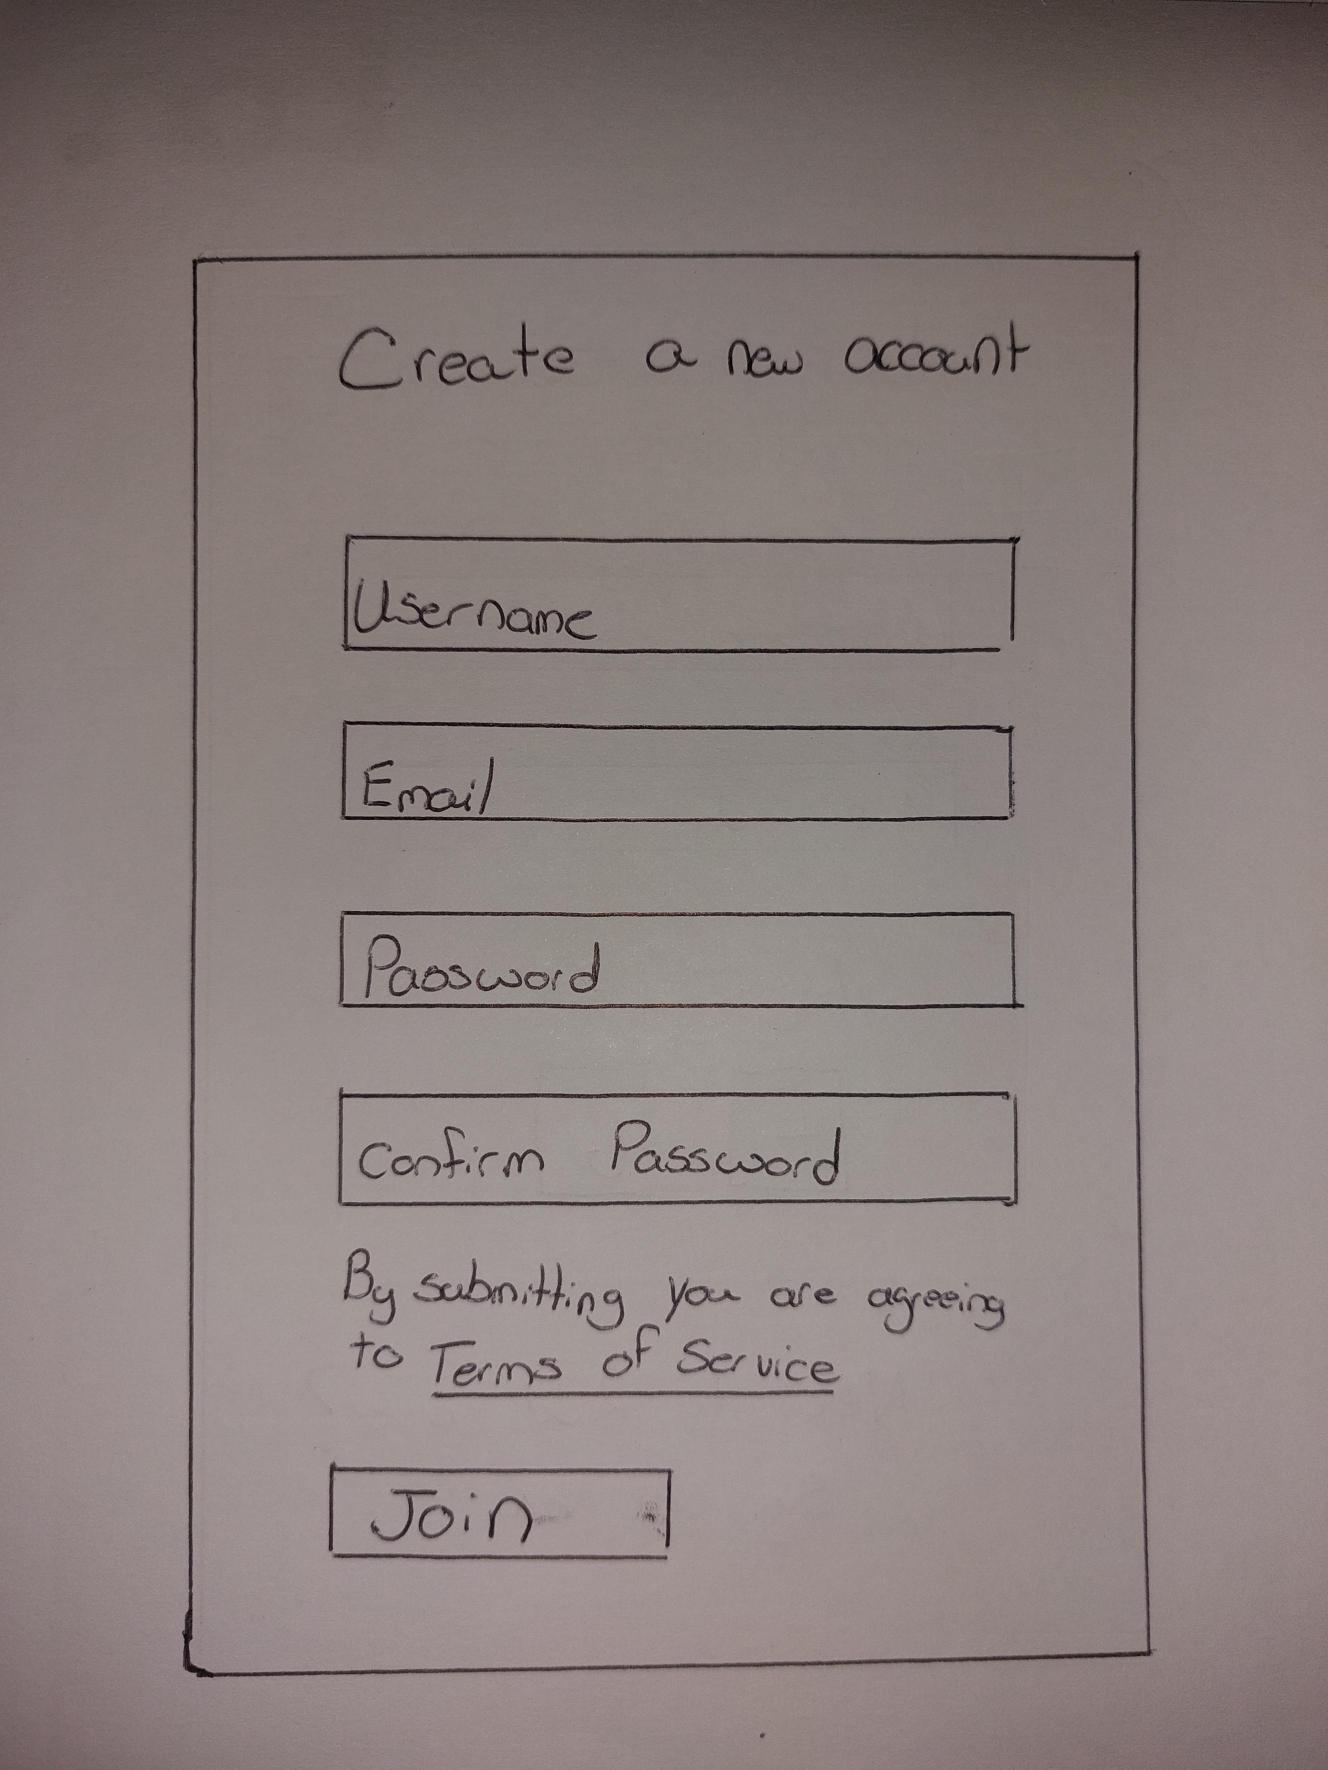 Create a new account
Username
Email
Password
Confirm Password
By submitting you are agreeing
to Terms of Service
Join